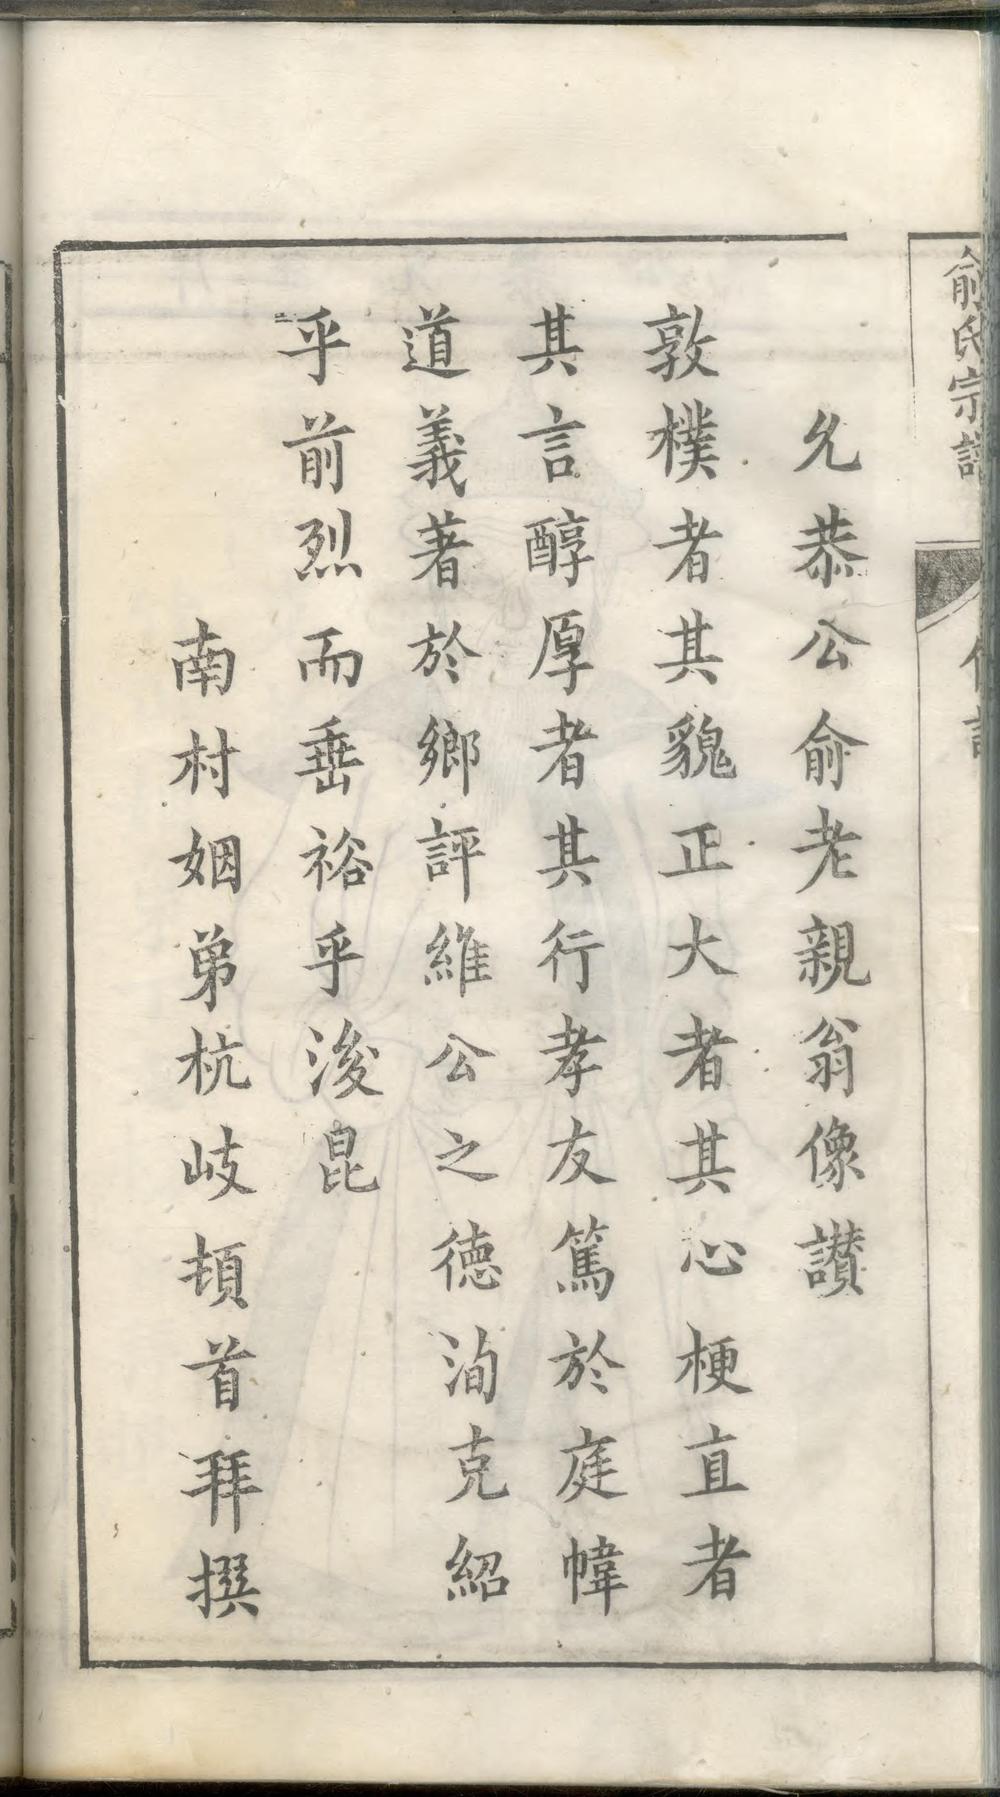 俞氏宗譜
允恭公俞老親翁像讃
敦樸者其貌正大者其心梗直者
其言醇厚者其行孝友篤於庭幃
道義著於鄉評維公之德洵克紹
乎前烈而垂裕乎後昆
南村姻弟杭岐頓首拜撰